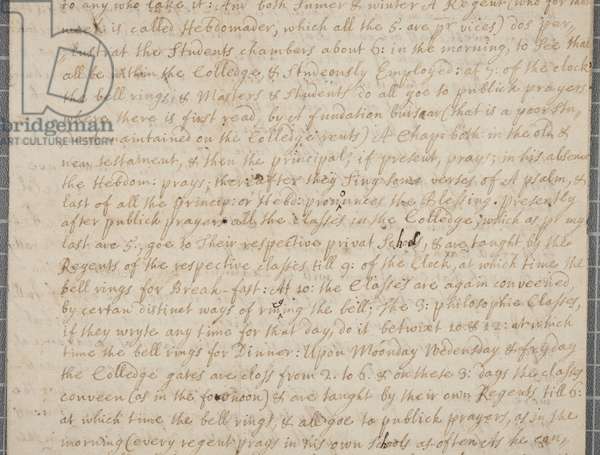 to any who take it: And both Sumer & winter A Regent (who for the
week is called Hebdomader, which all the 5. are pr vices) dos per,
lustrat the Students chambers about 6: in the morning, to See that
all be within the Colledge, & Studeously Employed: at 7. of the clock
the bell rings, & Masters & Students do all goe to publick prayers.
there is first read, by A fundation bursar (that is a poor Stu,
maintained on the Colledge rents) A Chapt: both in the old &
new testament, & then the principal, if present, prays; in his absence
the Hebdom: prays; thereafter they Sing some verses of A psalm, &
last of all the princip: or Hebd: pronunces the Blessing. Presently
after publick prayers all the classes in the Colledge, which as pr my
last are 5., goe to Their respective privat Schols, & are taught by the
Regents of the respective classes till 9: of the Clock, at which time the
bell rings for Break-fast: At 10: the Classes are again conveened,
by certan distinct ways of ringing the bell; the 3: philosophie Classes,
if they wryte any time for that day, do it betwixt 10 & 12: at which
time the bell rings for Dinner: Upon Moonday Wedensday & fryday
the Colledge gates are closs from 2. to 6. & on these 3: days the classes
conveen (as in the fornoon) & are taught by their own Regents, till 6:
at which time the bell rings, & all goe to publick prayers, as in the
morning (every regent prays in his own schools as often as he can,
bridgeman
ART CULTURE HISTORY
bridgeman
ART CULTURE HISTORY